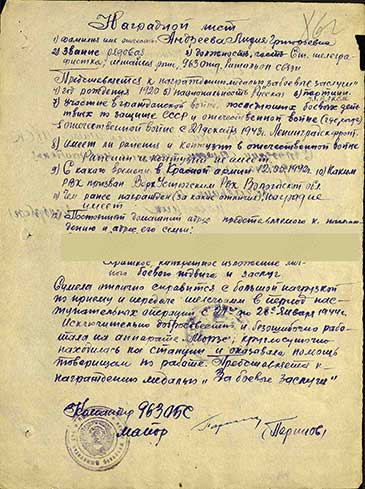 Наградной лист
1) фамилия имя отчество. Андреева Лидия Григорьевна
2) Звание рядовая 3) должность, часть Ст. телегра-
фистка, штабная рота, 963 отд. батальон связи
Представляется к награждению медалью "за боевые заслуги"
4) год рождения 1920 5) национальность Русская 6) партийн.
7) участие в гражданской войне, последующих боевых дейст-
виях по защите СССР и отечественной войне (где, когда)
в отечественной войне с 21 декабря 1943г. Ленинградск. фронт.
8) имеет ли ранения и контузии в отечественной войне
Ранений и контузий не имеет
9) С какого времени в Красной армии 12.05.1942г. 10) Каким
РВК призван РВК Вологодской обл.
11) Чем ранее награжден (за какие отличия) награды не
имеет
12) Постоянный домашний адрес представляемого к награж-
дению и адрес его семьи:
Краткое, конкретное изложение лич-
ного боевого подвига и заслуг
Сумела отлично справится с большой нагрузкой
по приему и передаче телеграмм в период нас-
тупательных операций с по 28е января 1944г.
Исключительно добросовестно и безошибочно рабо-
тала на аппарате "Морзе", круглосуточно
находилась на станции и оказывала помощь
товарищам по работе. Представляется к
награждению медалью "За боевые заслуги"
Командир 963 ОБС
майор (Паринов)